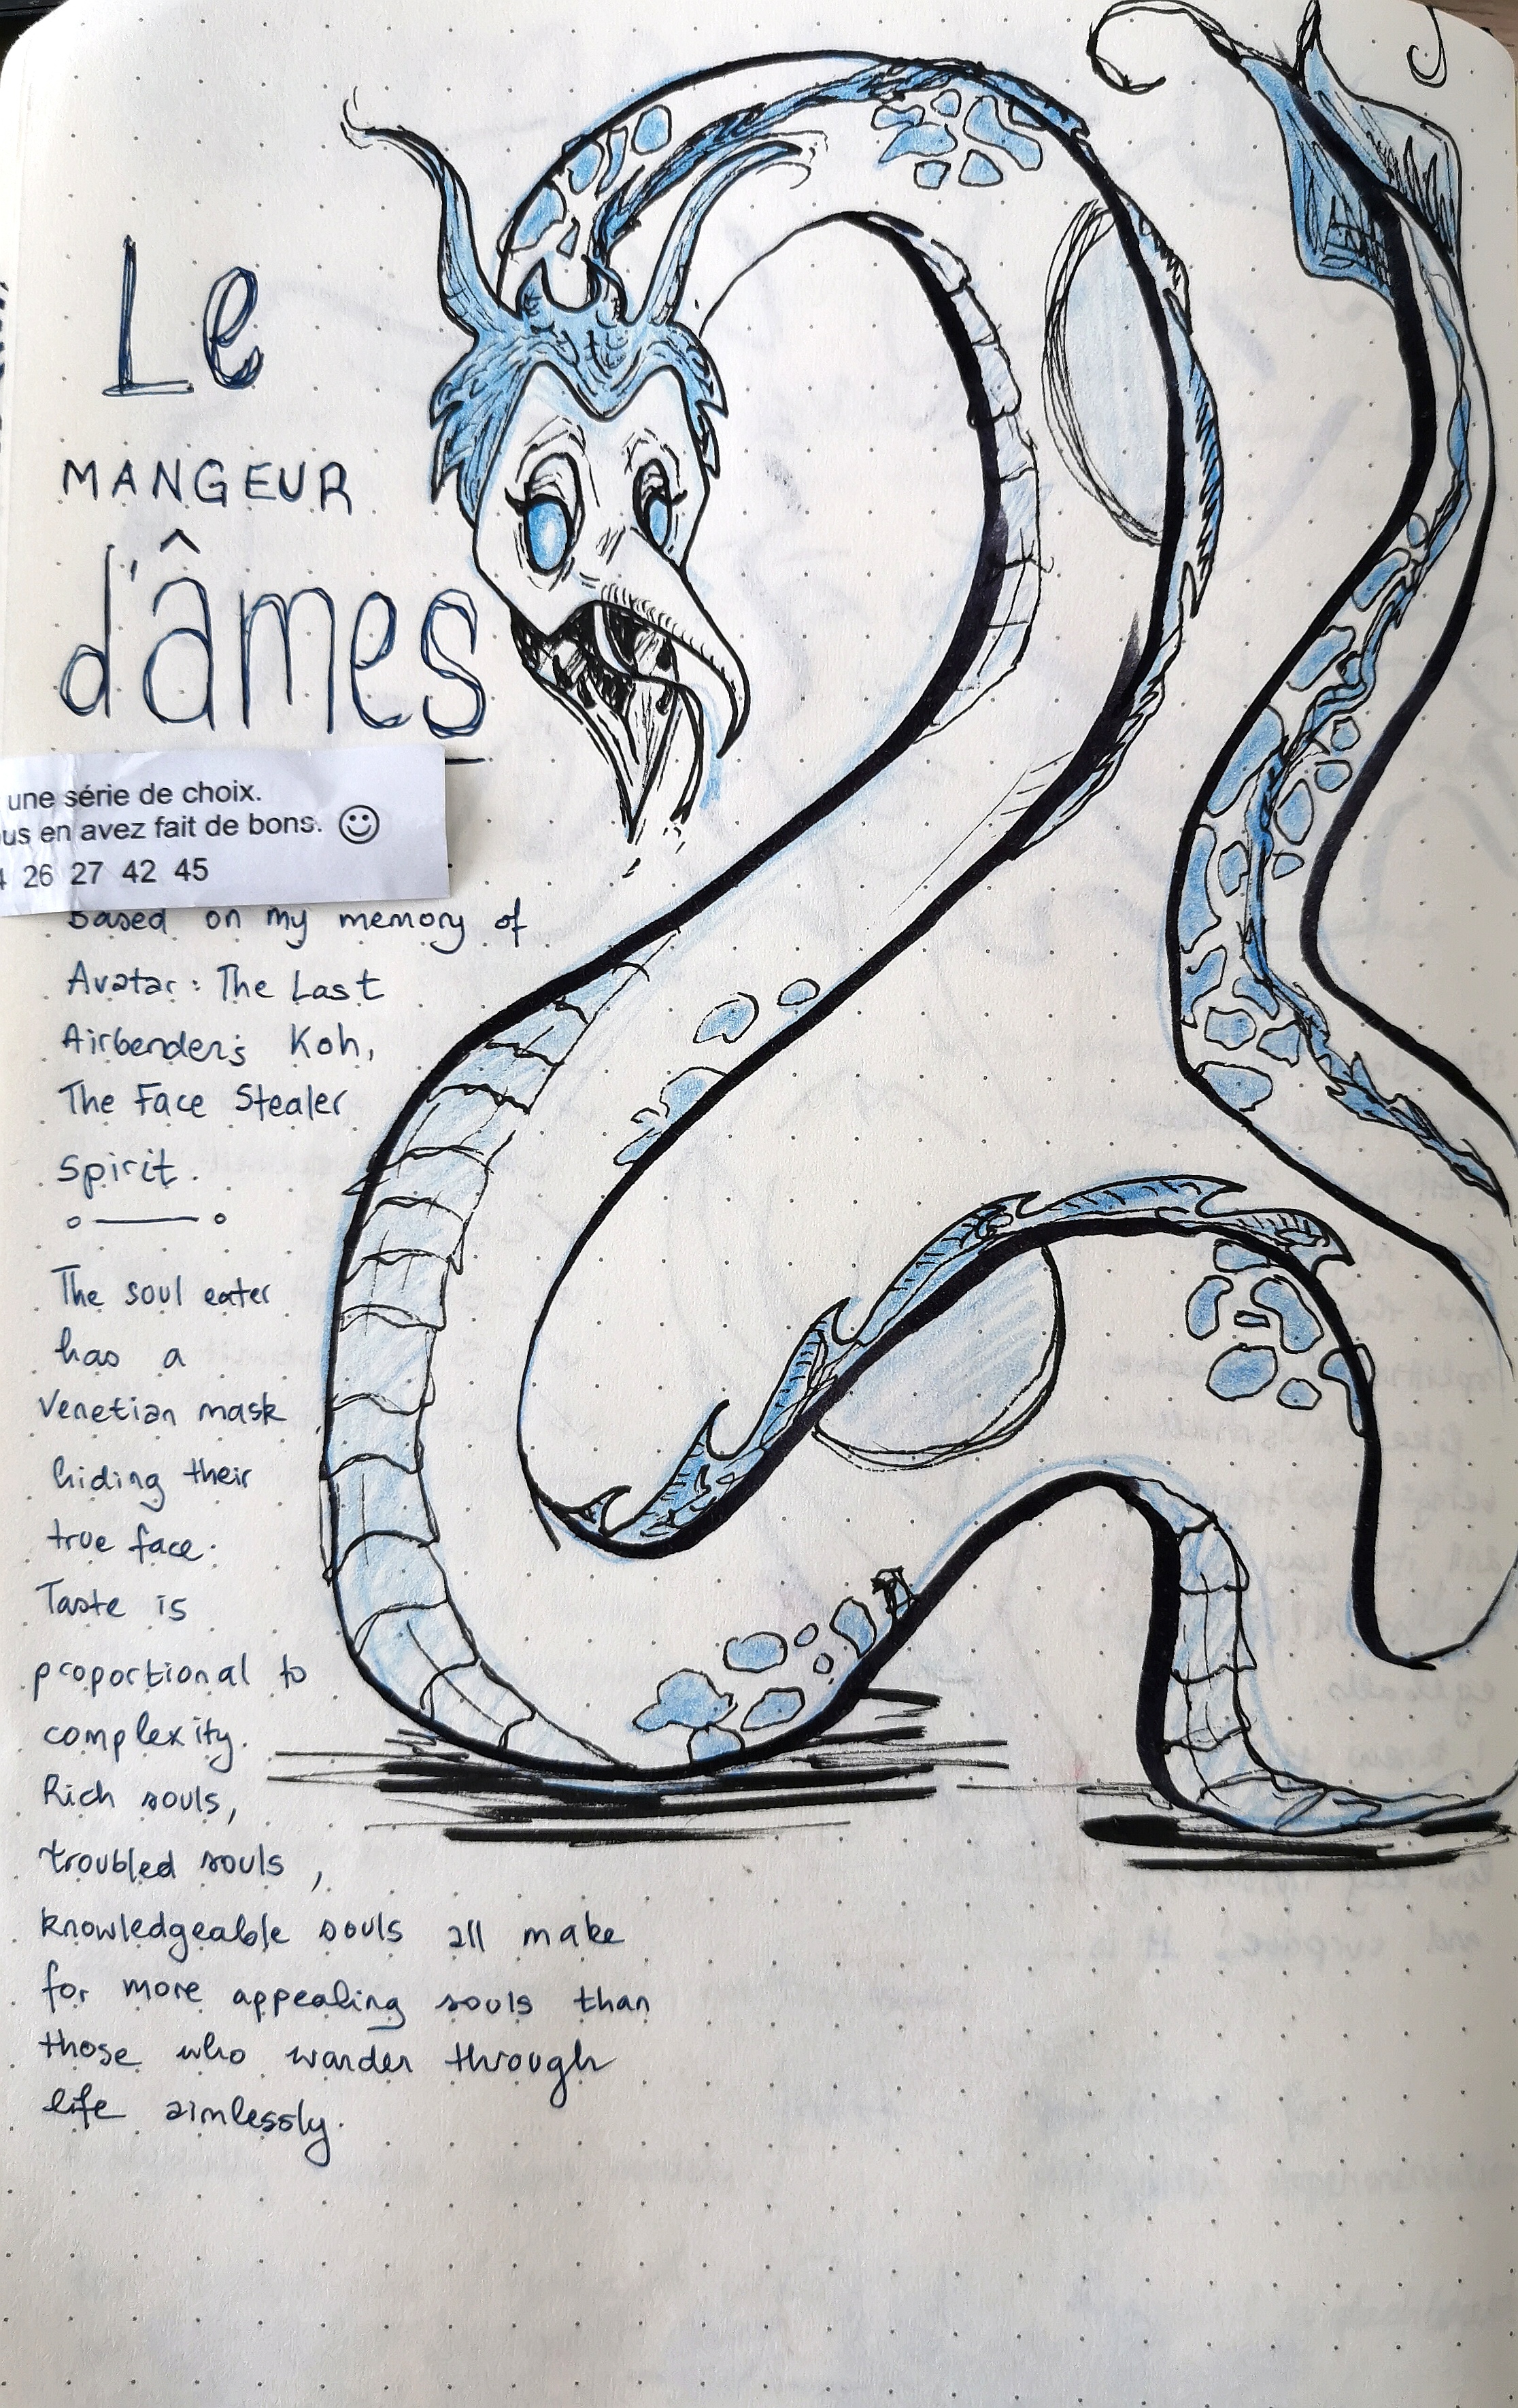 Le
MANGEUR
d'âmes
une série de choix.
us en avez fait de bons. ☺
26 27 42 45
Based on my memory of
Avatar: The Last
Airbender's Koh,
The Face Stealer
Spirit.
The soul eater
has a
Venetian mask
hiding their
true face.
Taste is
proportional to
complexity.
Rich souls,
troubled souls,
knowledgeable souls all make
for more appealing souls than
those who wander through
life aimlessly.